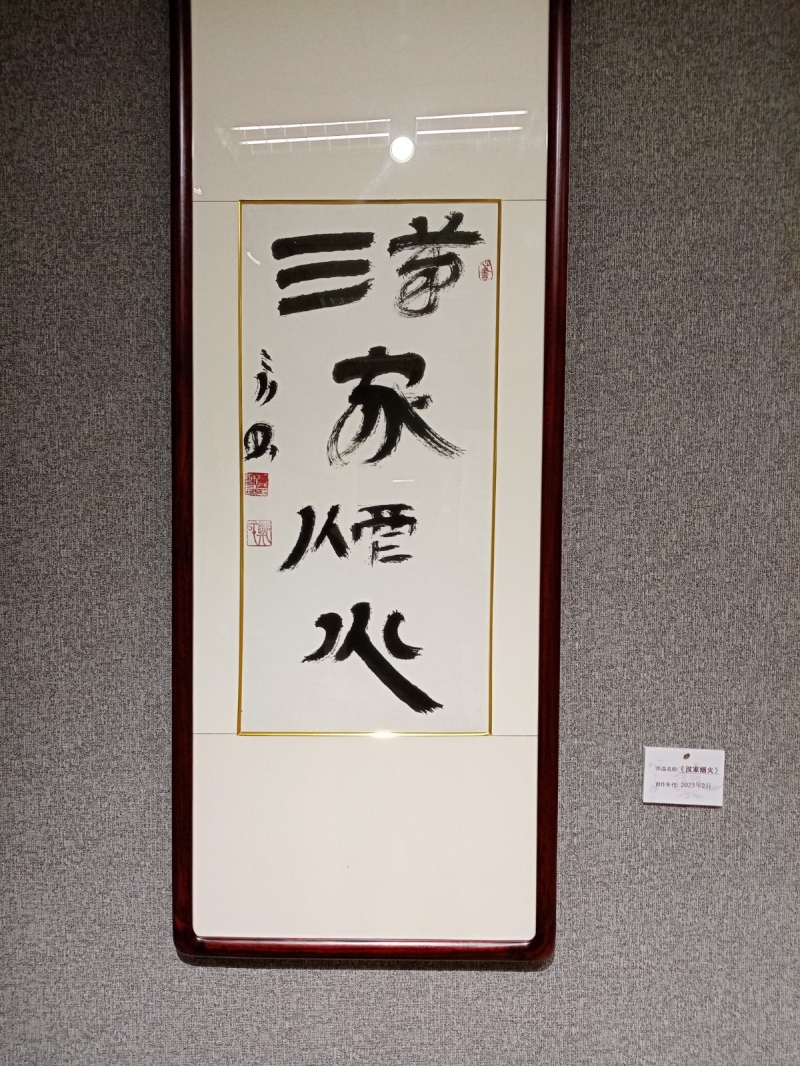 漢
家
煙
火
作品名称:《汉家烟火》
创作年代: 2023年2月